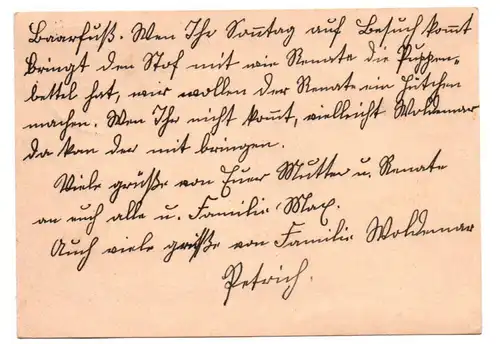 Baarfuß. Wen Ihr Sonntag auf Besuch komt
bringt den Stof mit wie Renate die Puppen-
bettel hat, wir wollen der Renate ein Hütchen
machen. Wen Ihr nicht komt, vielleicht Woldemar
da kan der mit bringen.
Viele grüße von Euer Mutter u. Renate
an euch alle u. Familie Max.
Auch viele grüße von Familie Woldemar
Petrich.